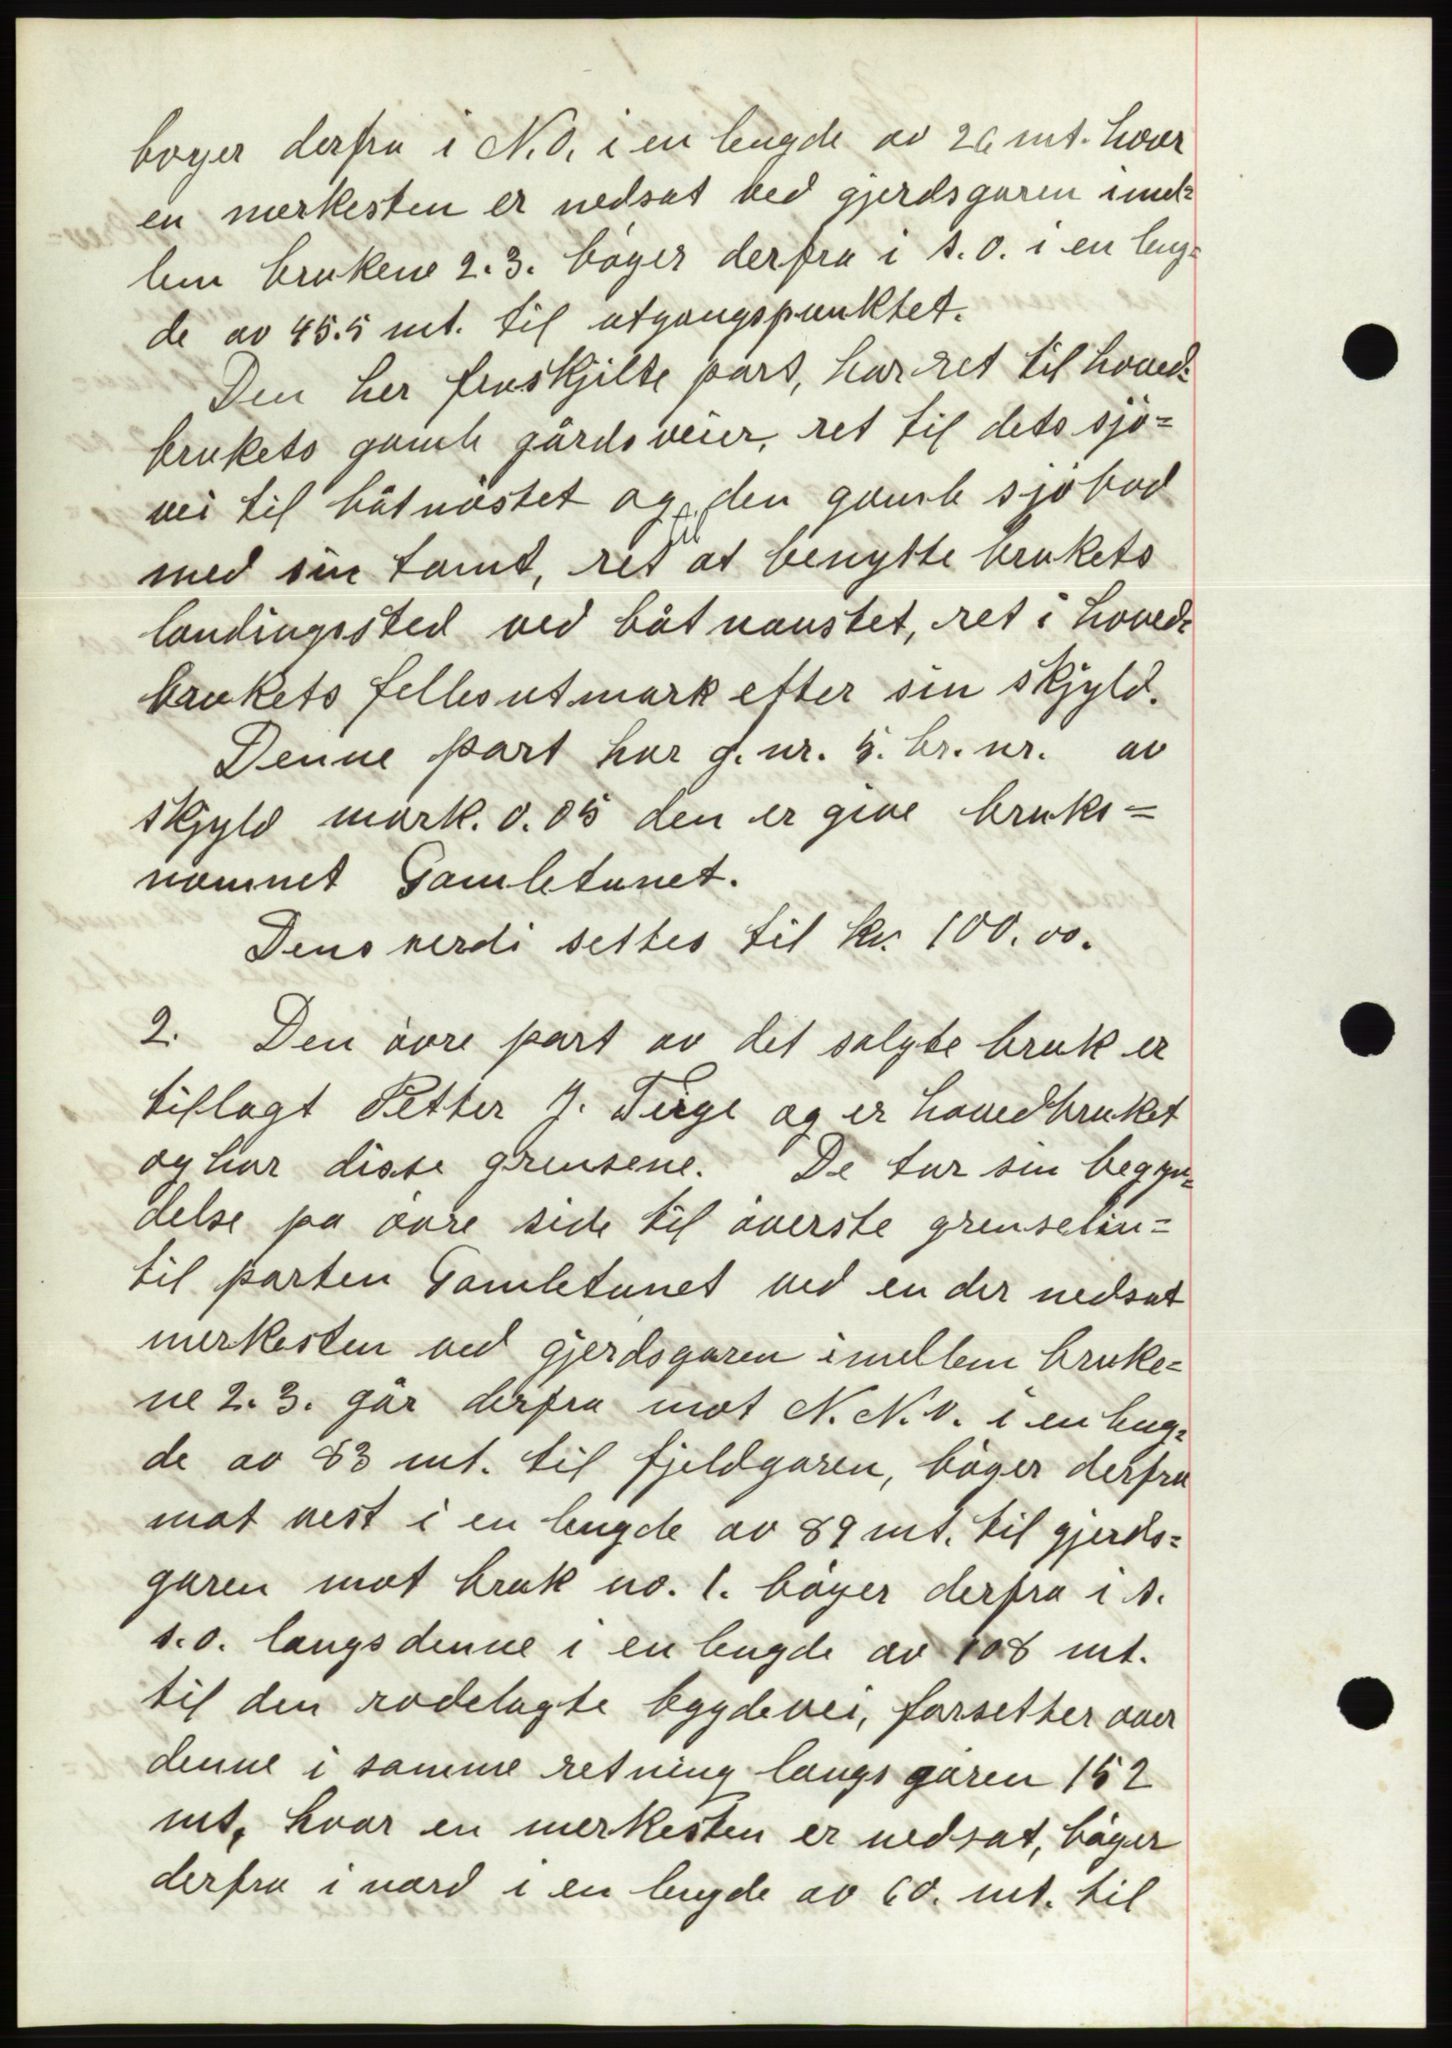 boyer derfra i N.O. i en lengde av 26 mt. hvor
en merkesten er nedsat ved gjerdsgaren imel=
lem brukene 2.3. böyer derfra i s.o. i en leng=
de av 45.5 mt. til utgangspunktet.
Den her fraskjilte part, har ret til hoved=
brukets gamle gårdsveier, ret til dets sjö=
vei til båtnöstet og den gamle sjöbod
med sin tomt, ret til at benytte brukets
landingssted ved båtnaustet, ret i hoved=
brukets felles utmark efter sin skjyld.
Denne part har g.nr. 5. br.nr. av
skjyld mark. 0.05 den er give bruks=
namnet Gamletunet.
Dens verdi settes til kr. 100.00.
2. Den övre part av det salgte bruk er
tillagt Petter J. Teige og er hovedbruket
og har disse grensene. De tar sin begyn=
delse pa övre side til överste grenselin=
til parten Gamletunet ved en der nedsat
merkesten ved gjerdsgaren imellem bruke=
ne 2.3. går derfra mot N.N.V. i en leng=
de av 83 mt. til fjeldgaren, böyer derfra
mot vest i en lengde av 89 mt. til gjerds=
garen mot bruk no. 1. böyer derfra i s.
s.o. langs denne i en lengde av 108 mt.
til den rodelagte bygdevei, forsetter over
denne i samme retning langs garen 152
mt, hvor en merkesten er nedsat, böyer
derfra i nord i en lengde av 60. mt. til